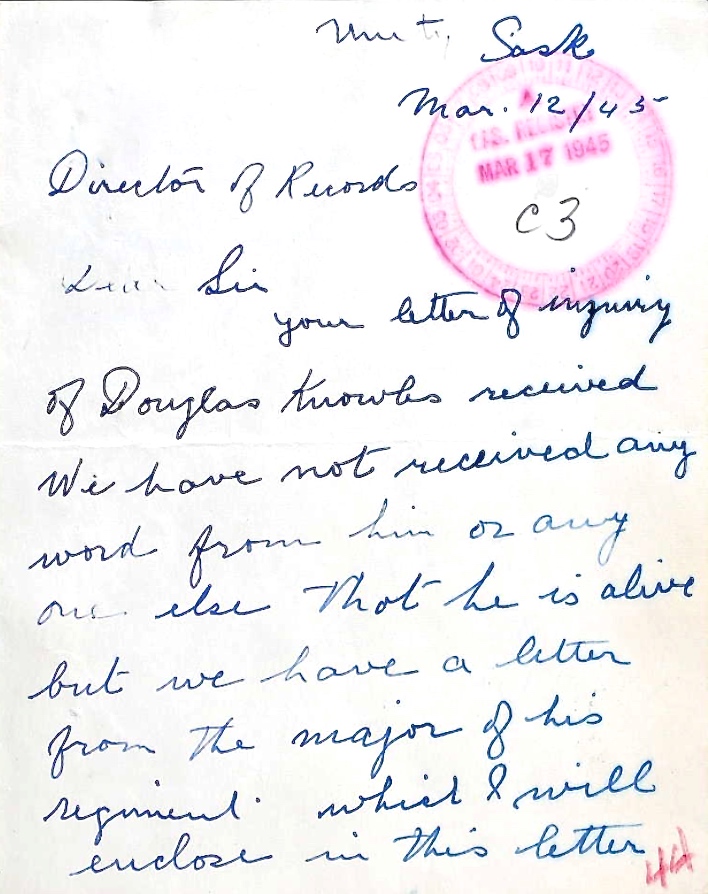 Unity, Sask
Mar. 12/45
CAS. RECORDS
MAR 17 1945
C3
Director of Records
Dear Sir
your letter of inquiry
of Douglas Knowles received
We have not received any
word from him or any
one else that he is alive
but we have a letter
from the major of his
regiment. which I will
enclose in this letter